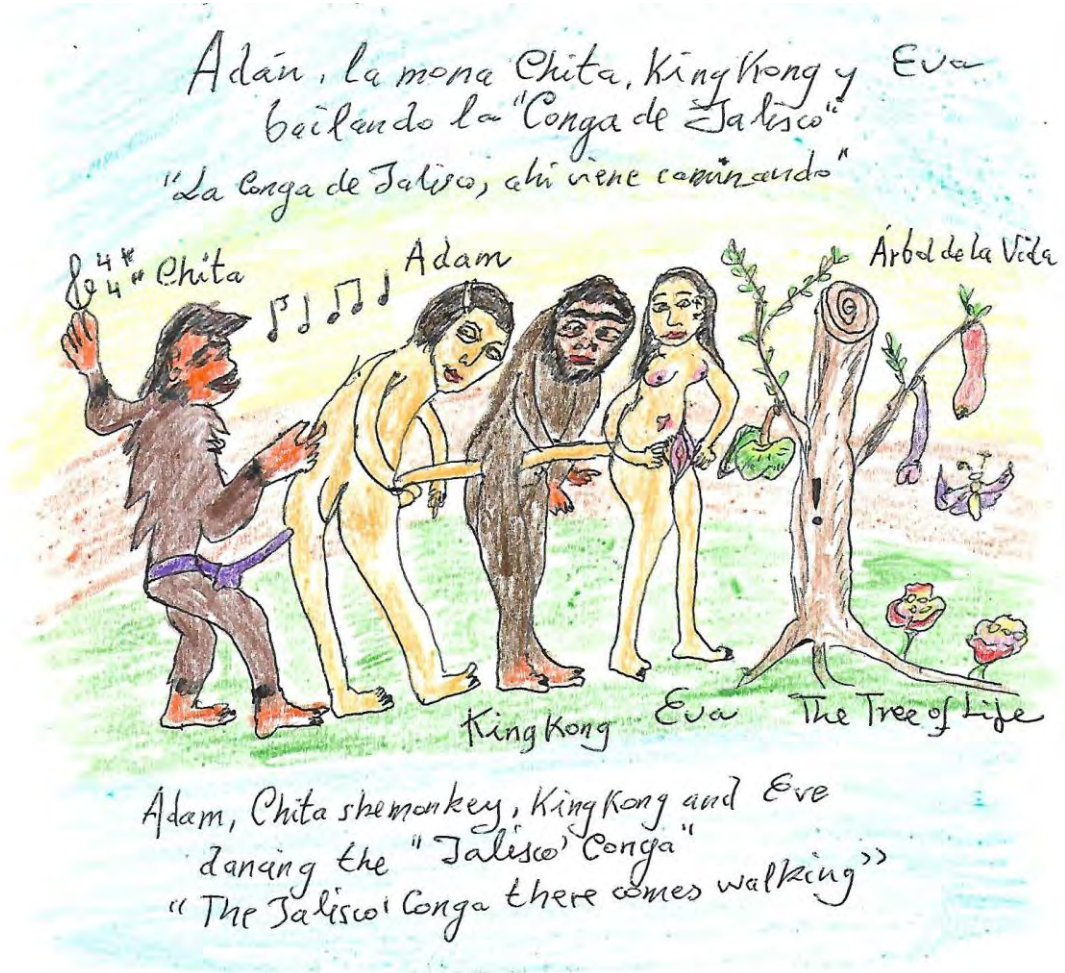 Adán, la mona Chita, King Kong y Eva
bailando la "Conga de Jalisco"
"La Conga de Jalisco, ahi viene caminando"
4
4
Chita
Adam
Árbol de la Vida
!
King Kong
Eva
The Tree of Life
Adam, Chita shemonkey, King Kong and Eve
dancing the "Jalisco' Conga"
"The Jalisco' Conga there comes walking"